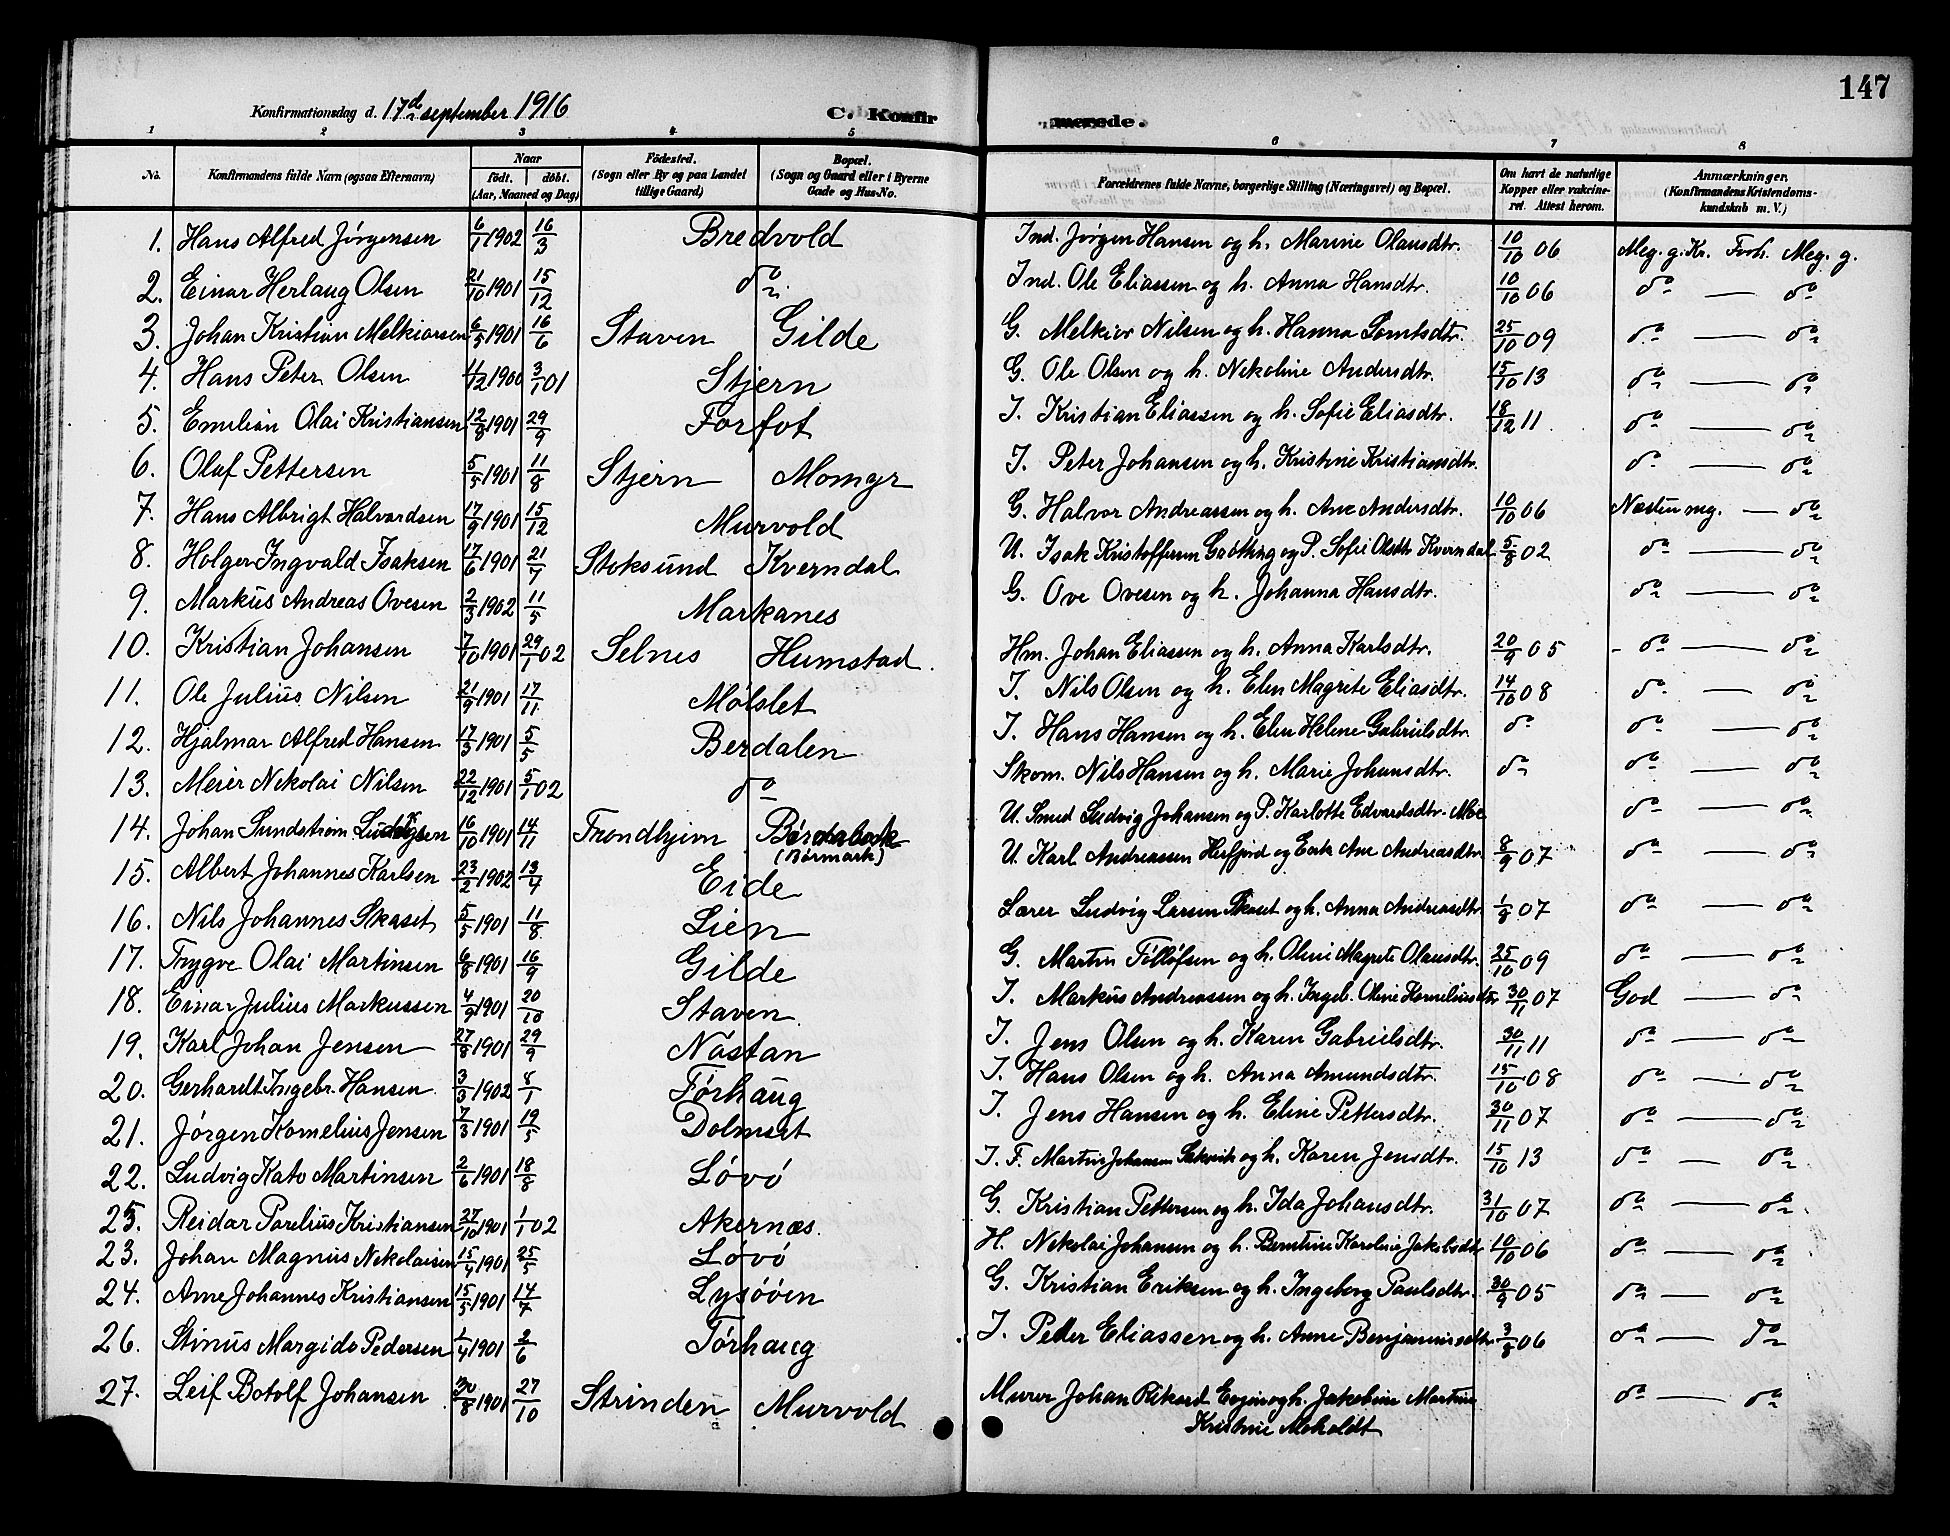 147
Konfirmationsdag d. 17de september 1916 C. Konfirmerede.
1 2 3 4 5 6 7 8
No. Konfirmandens fulde Navn (ogsaa Efternavn) Naar födt. döbt. (Aar, Maaned og Dag) Födested. (Sogn eller By og paa Landet tillige Gaard) Bopæl. (Sogn og Gaard eller i Byerne Gade og Hus-No. Forældrenes fulde Navne, borgerlige Stilling (Næringsvei) og Bopæl. Om havt de naturlige Kopper eller vakcineret. Attest herom. Anmærkninger. (Konfirmandens Kristendomskundskab m. V.)
1. Hans Alfred Jørgensen 6/1 1902 16/3 Bredvold Ind. Jørgen Hansen og h. Marine Olausdtr. 10/10 06 Meg. g. Kr. Forh. Meg. g.
2. Einar Herlaug Olsen 21/10 1901 15/12 do Ind. Ole Eliassen og h. Anna Hansdtr. 10/10 06 do — do
3. Johan Kristian Melkiorsen 6/5 1901 16/6 Staven Gilde G. Melkior Nilsen og h. Hanna Lorntsdtr. 25/10 09 do — do
4. Hans Peter Olsen 4/12 1900 3/1 01 Stjern G. Ole Olsen og h. Nekoline Andersdtr. 15/10 13 do — do
5. Emilian Olai Kristiansen 12/8 1901 29/9 Forfot I. Kristian Eliassen og h. Sofie Eliasdtr. 18/12 11. do — do
6. Olaf Pettersen 5/5 1901 11/8 Stjern Momyr I. Peter Johansen og h. Kristine Kristiansdtr. do — do
7. Hans Albrigt Halvardsen 17/9 1901 15/12 Murvold G. Halvor Andreassen og h. Ane Andersdtr. 10/10 06 Næsten mg. — do
8. Holger Ingvald Isaksen 17/6 1901 21/7 Stoksund Kverndal U. Isak Kristoffersen og P. Sofie Olsdtr Kverndal 5/8 02 do — do
9. Markus Andreas Ovesen 2/3 1902 11/5 Markanes G. Ove Ovesen og h. Johanna Hansdtr. do — do
10. Kristian Johansen 7/10 1901 29/1 02 Selnes Humstad. Hm. Johan Eliassen og h. Anna Karlsdtr. 20/9 05 - do — do
11. Ole Julius Nilsen 21/9 1901 17/11 Mølslet I. Nils Olsen og h. Elen Magrete Eliasdtr. 14/10 08 do — do
12. Hjalmar Alfred Hansen 17/3 1901 5/5 Berdalen I. Hans Hansen og h. Elen Helene Gabrielsdtr. do do — do
13. Meier Nekolai Nilsen 22/12 1901 5/1 02 do Skom. Nils Hansen og h. Marie Johansdtr. do do — do
14. Johan Sundstrøm Ludvigsen 16/10 1901 14/11 Trondhjem (Børmark) U. Smed Ludvig Johansen og P. Karlotte Edvardsdtr. Moe do — do
15. Albert Johannes Karlsen 23/2 1902 13/4 Eide U. Karl Andreassen Herfjord og Enke Ane Andreasdtr 8/9 07 do — do
16. Nils Johannes Skaset 5/5 1901 11/8 Lien Lærer Ludvig Larsen Skaset og h. Anna Andreasdtr 1/8 07 do — do
17. Trygve Olai Martinsen 6/8 1901 16/9 Gilde G. Martin Tøllefsen og h. Oline Magrete Olausdtr. 25/10 09 do — do
18. Einar Julius Markussen 4/9 1901 20/10 Staven. I. Markus Andreassen og h. Ingeb. Oline Korneliusdtr 30/11 07 God — do
19. Karl Johan Jensen 27/8 1901 29/9 Nøstan I. Jens Olsen og h. Karen Gabrielsdtr. 30/11 11 do — do
20. Gerhardt Ingebr. Hansen. 3/3 1902 8/1 Tørhaug I. Hans Olsen og h. Anna Amundsdtr. 15/10 08 do — do
21. Jørgen Kornelius Jensen 7/3 1901 19/5 Dolmset I. Jens Hansen og h. Eline Pettersdtr. 30/11 07 do — do
22. Ludvig Kato Martinsen 2/6 1901 18/8 Løvø I. F. Martin Johansen og h. Karen Jensdtr. 15/10 13 do — do
25. Reidar Parelius Kristiansen 27/10 1901 1/1 02 Akernæs. G. Kristian Pettersen og h. Ida Johansdtr. 31/10 07 do — do
23. Johan Magnus Nekolaisen 15/4 1901 25/5 Løvø H. Nekolai Johansen og h. Berntine Karoline Jakobsdtr 10/10 06 do — do
24. Arne Johannes Kristiansen 15/5 1901 14/7 Lysøen G. Kristian Eriksen og h. Ingeborg Paulsdtr. 30/9 05 do — do
26. Stinus Margido Pedersen 1/4 1901 2/6 Tørhaug I. Petter Eliassen og h. Anne Benjaminsdtr 3/8 06 do — do
27. Leif Botolf Johansen 30/8 1901 27/10 Strinden Murvold Murer Johan Rikard og h. Jakobine Martine do — do
Kristine